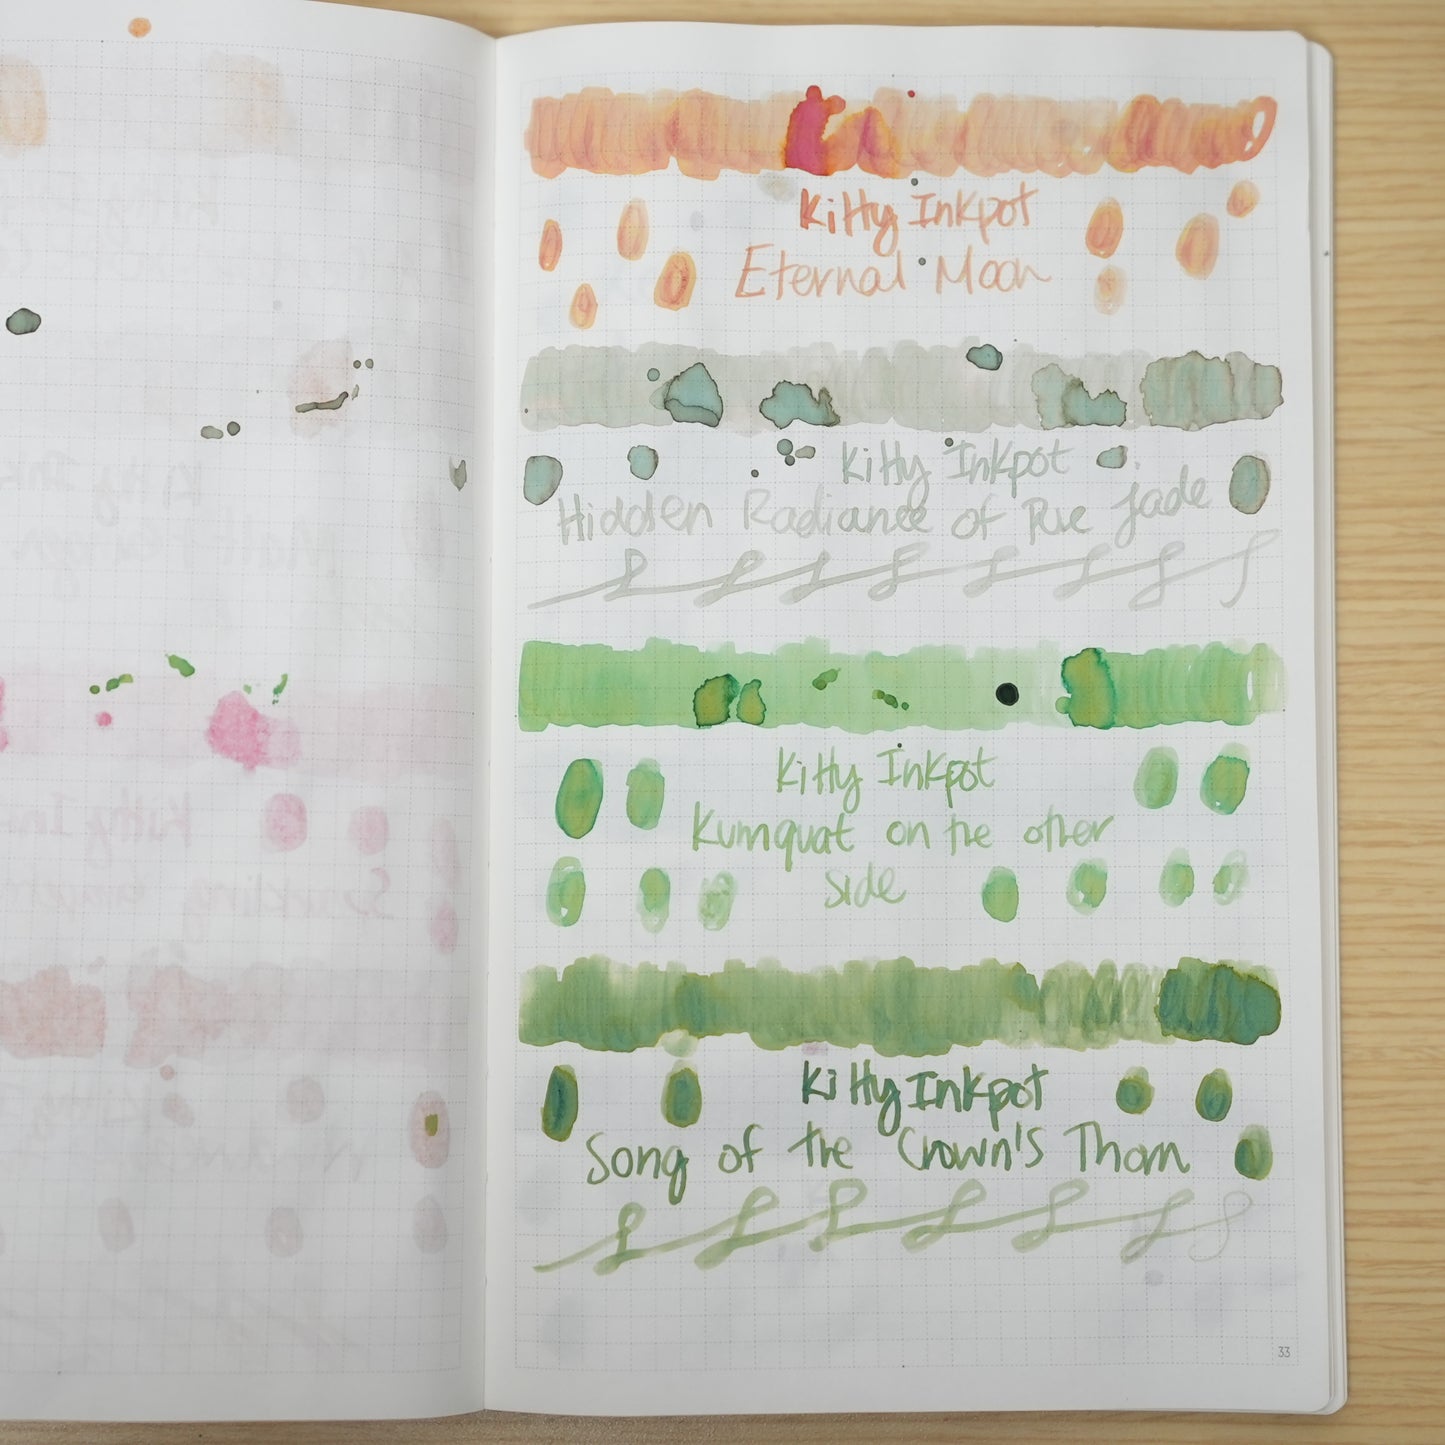 Kitty Inkpot
Eternal Moon
Kitty Inkpot
Hidden Radiance of Rue Jade
Kitty Inkpot
Kumquat on the other
side
Kitty Inkpot
Song of the Crown's Thorn
33